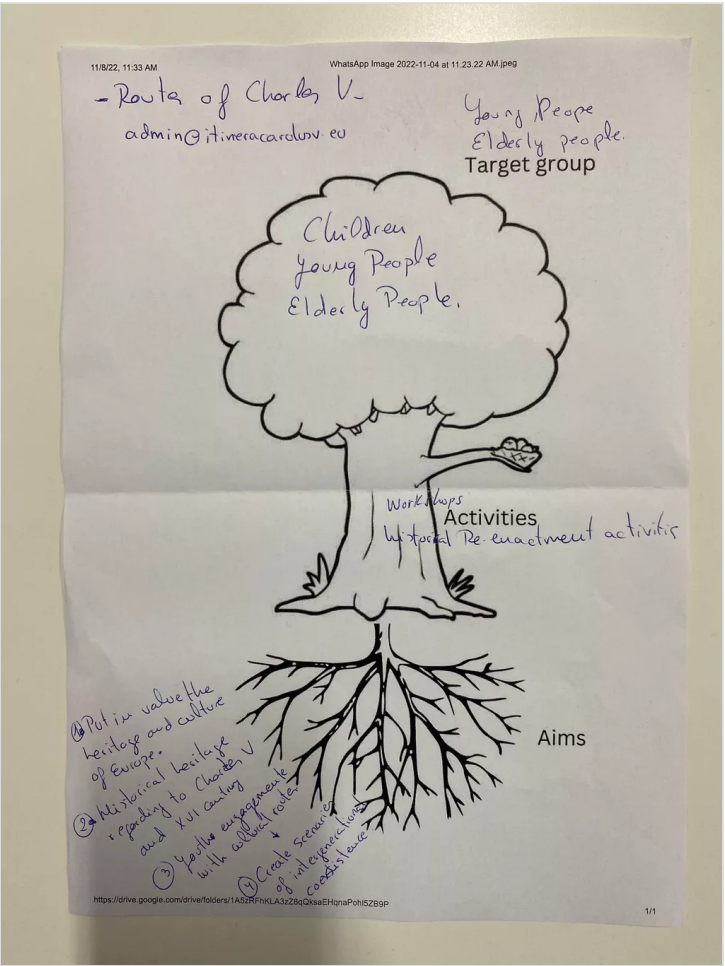 11/8/22, 11:33 AM
WhatsApp Image 2022-11-04 at 11.23.22 AM.jpeg
- Route of Charles V -
admin@itineracarolusv.eu
Young Peope
Elderly people.
Target group
Children
Young People
Elderly People.
Workshops
Activities
Historical Re-enactment activities
Aims
1 Put in value the
heritage and culture
of Europe.
2 Historical heritage
regarding to Charles V
and XVI century
3 Youths engagement
with cultural routes
4 Create scenarios
of intergenerational
coexistence
https://drive.google.com/drive/folders/1A5zRFhKLA3zZ8qQksaEHqnaPohI5ZB9P
1/1